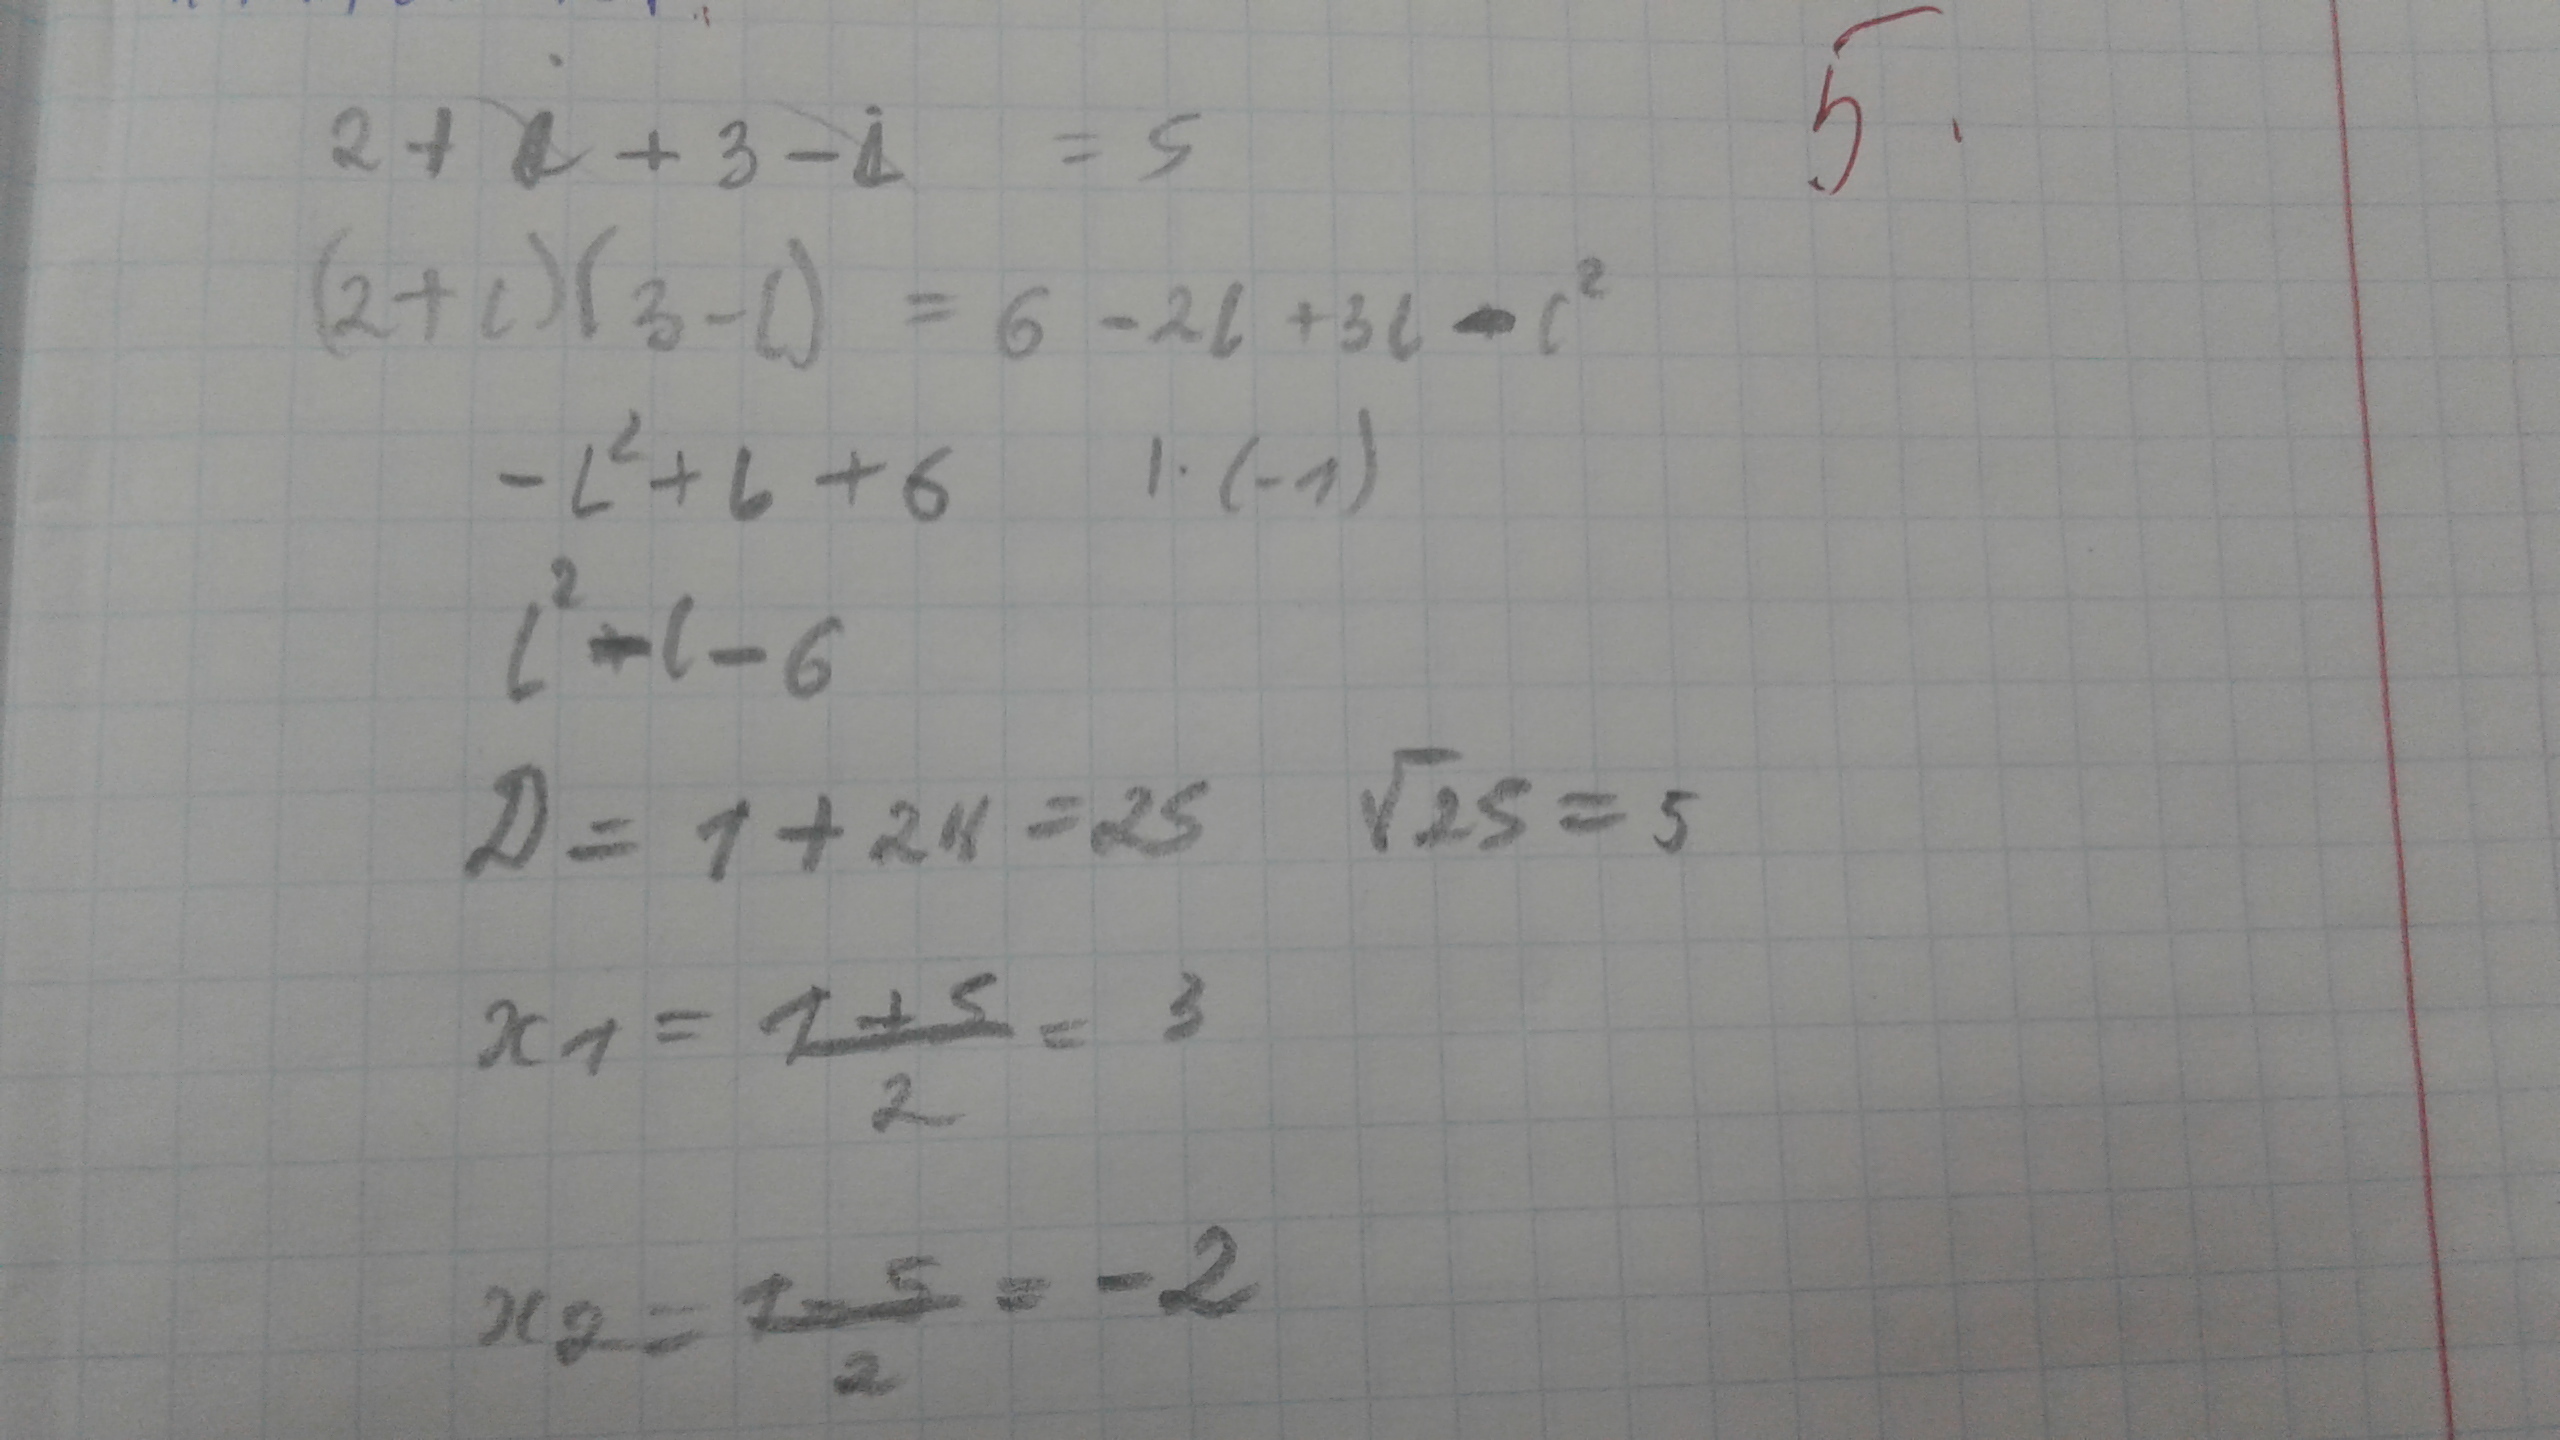 5.
2 + i + 3 - i = 5
(2 + i)(3 - i) = 6 - 2i + 3i - i²
- i² + i + 6 | · (-1)
i² - i - 6
D = 1 + 24 = 25 √25 = 5
x1 = (1 + 5)/2 = 3
x2 = (1 - 5)/2 = -2